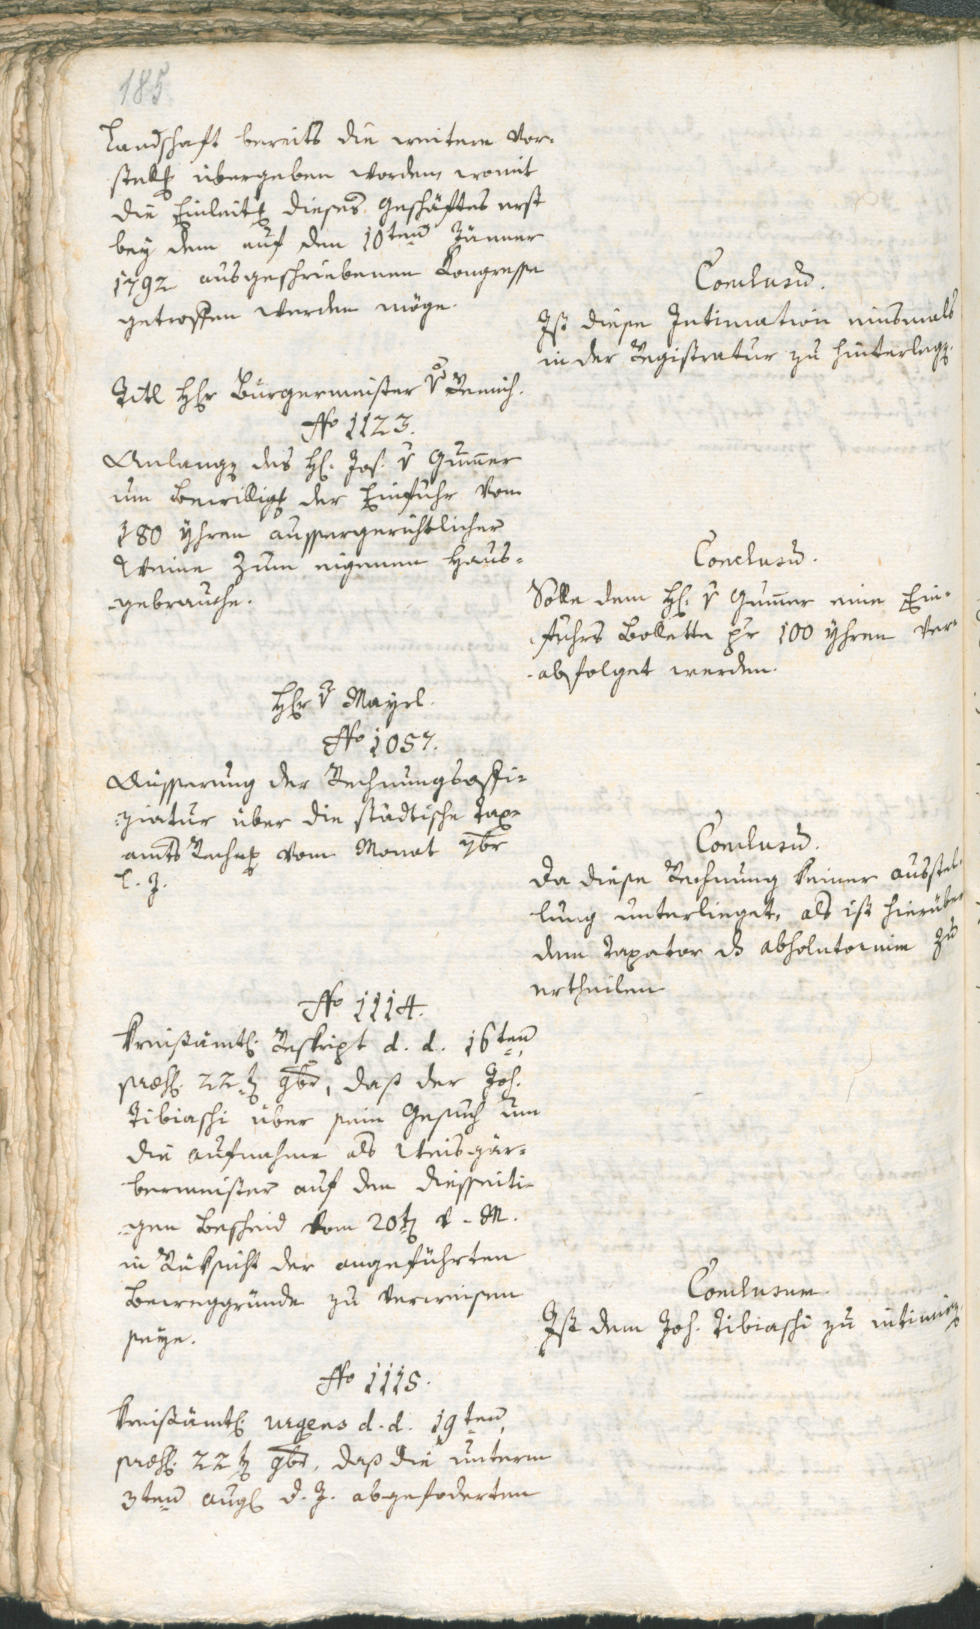 185
Landschaft bereits die weitere Vor-
stellg übergeben worden, womit
die Einleitg dieses Geschäftes erst
bey dem auf den 10ten Jänner
1792 ausgeschriebenen Kongresse
getroffen werden möge.
Conclusū.
Ist diese Intimation einsmals
in der Registratur zu hinterlegz.
Titl Hhr Bürgermeister v
No 1123.
Anlangz des H. Jos. v Gum̄er
um Bewilligg der Einfuhr von
180 Yhren aussergerichtlicher
Weine zum eigenen Haus-
gebrauche.
Conclusū.
Solle dem H. v Gum̄er eine Ein-
fuhrs Bollette pr 100 Yhren ver-
abfolget werden.
Hhr v Mayrl.
No 1057.
Äusserung der Rechnungsoffi-
ziatur über die städtische Tax-
amts Rechng vom Monat 7br
l. J.
Conclusū.
Da diese Rechnung keiner ausstel-
lung unterlieget, als ist hierüber
dem Taxator ds absolutorium zu
ertheilen
No 1114.
Kreisämtl. Reskript d. d. 16ten
praes. 22tz 9br, daß der Joh.
Tibiaschi über sein Gesuch um
die aufnahme als Weis-gär-
bermeister auf den diesseiti-
gen Bescheid vom 20tz v. M.
in Rüksicht der angeführten
Beweggründe zu verweisen
seye.
Conclusum
Ist dem Joh. Tibiaschi zu intimirz.
No 1115.
Kreisämtl. urgens d. d. 19ten,
praes. 22tz 9br, daß die unterm
3ten augl d. J. abgefoderten